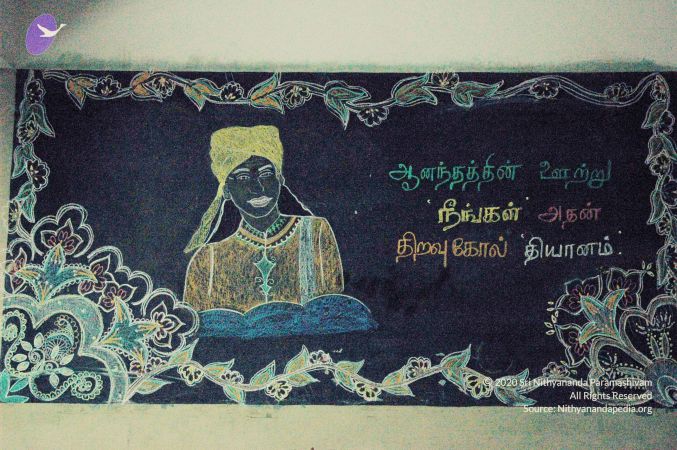 ஆனந்தத்தின் ஊற்று
'நீங்கள்' அதன்
திறவுகோல் 'தியானம்'.
© 2020 Sri Nithyananda Paramashivam
All Rights Reserved
Source: Nithyanandapedia.org